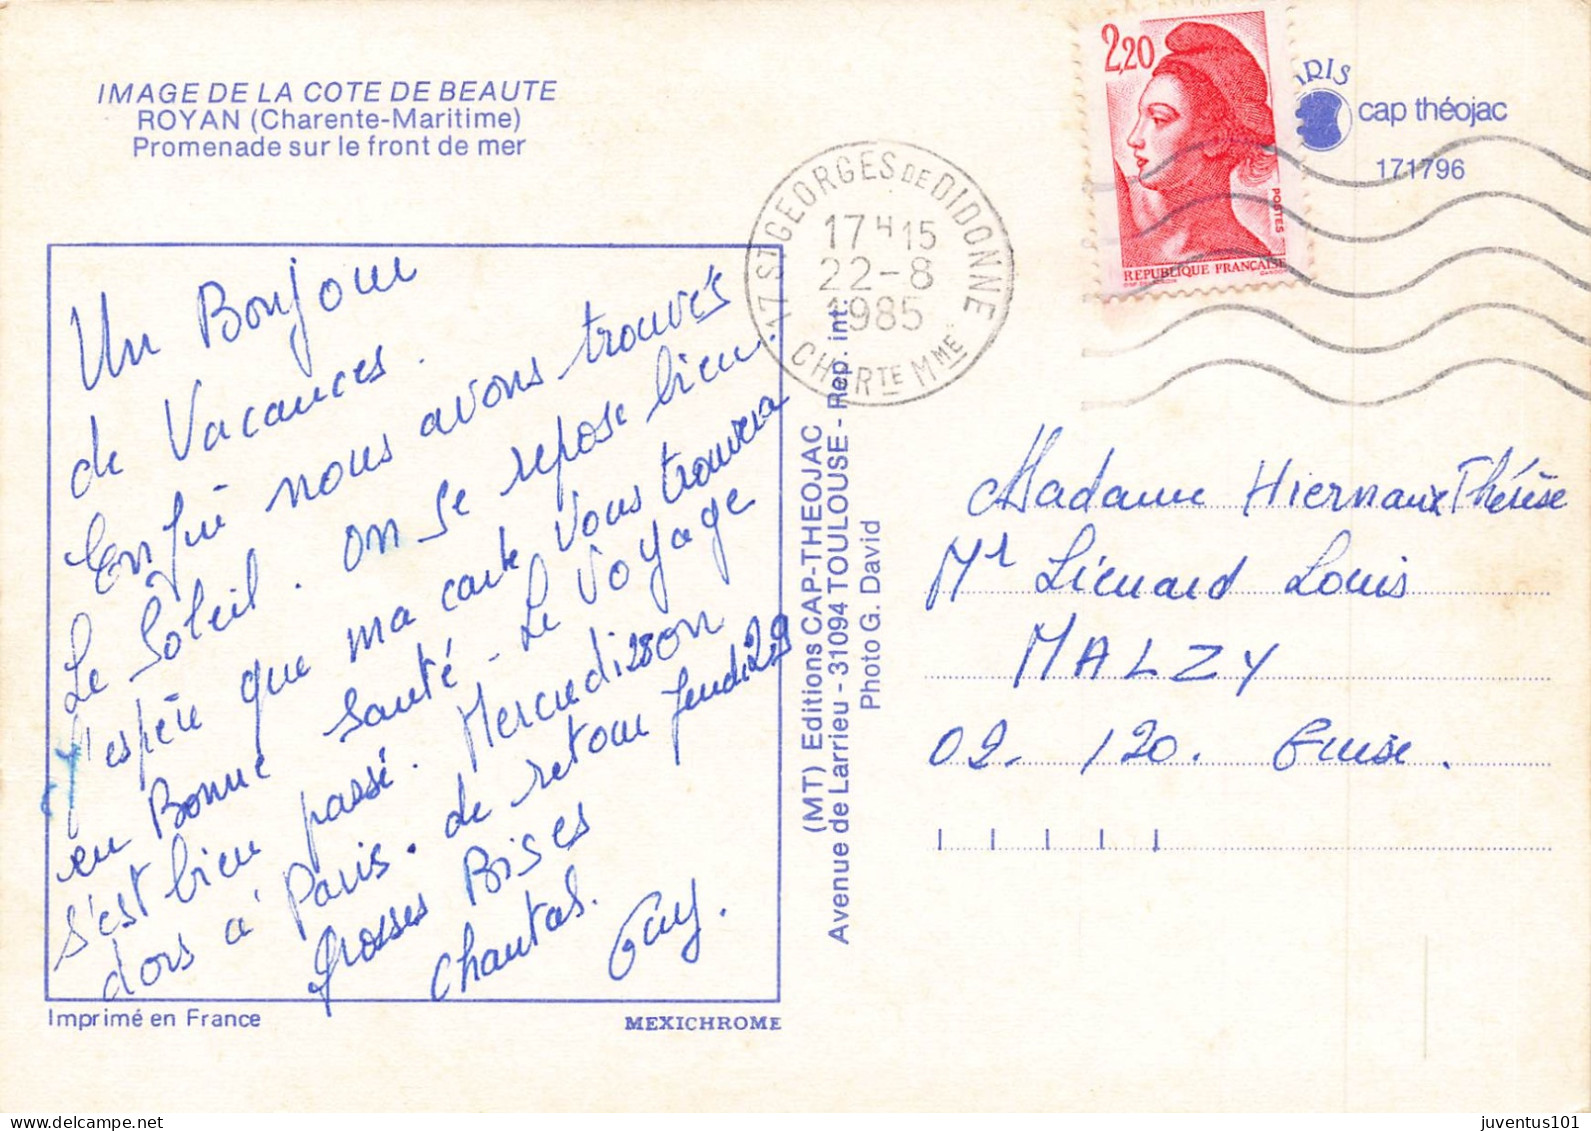 IMAGE DE LA COTE DE BEAUTE
ROYAN (Charente-Maritime)
Promenade sur le front de mer
2,20
POSTES
REPUBLIQUE FRANÇAISE
IRIS
cap théojac
171796
17 ST GEORGES DE DIDONNE
17 H 15
22-8
1985
CHARTE MME
Un Bonjour
de Vacances.
Enfin nous avons trouvés
Le Soleil. on se repose bien.
J'espère que ma carte vous trouvera
en Bonne santé - Le voyage
s'est bien passé. Mercredi 28 on
dors à Paris. de retour Jeudi 29
Grosses Bises
Chantal. Guy.
Imprimé en France
MEXICHROME
(MT) Editions CAP-THEOJAC
Avenue de Larrieu - 31094 TOULOUSE - Rep. int.
Photo G. David
Madame Hiernaux Thérèse
Mr Liénard Louis
MALZY
02-120. Guise.
juventus101